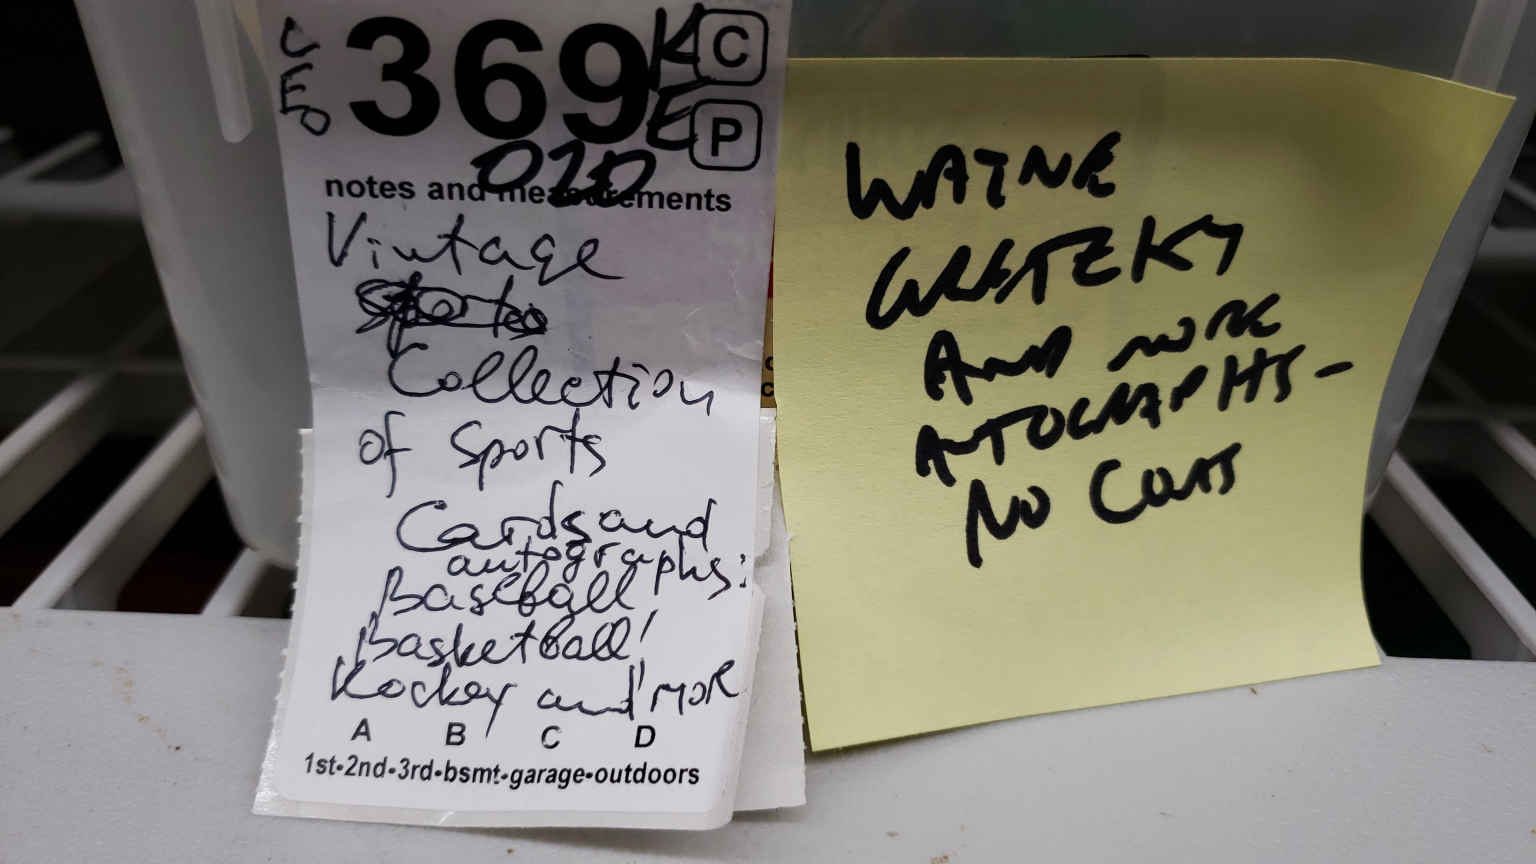 CEO 369 KE C
P
020
notes and measurements
Vintage
Collection
of Sports
Cards and
autographs:
Baseball
Basketball!
Hockey and more
A B C D
1st-2nd-3rd-bsmt-garage-outdoors
WAYNE
GRETZKY
AND MORE
AUTOGRAPHS-
NO COAS